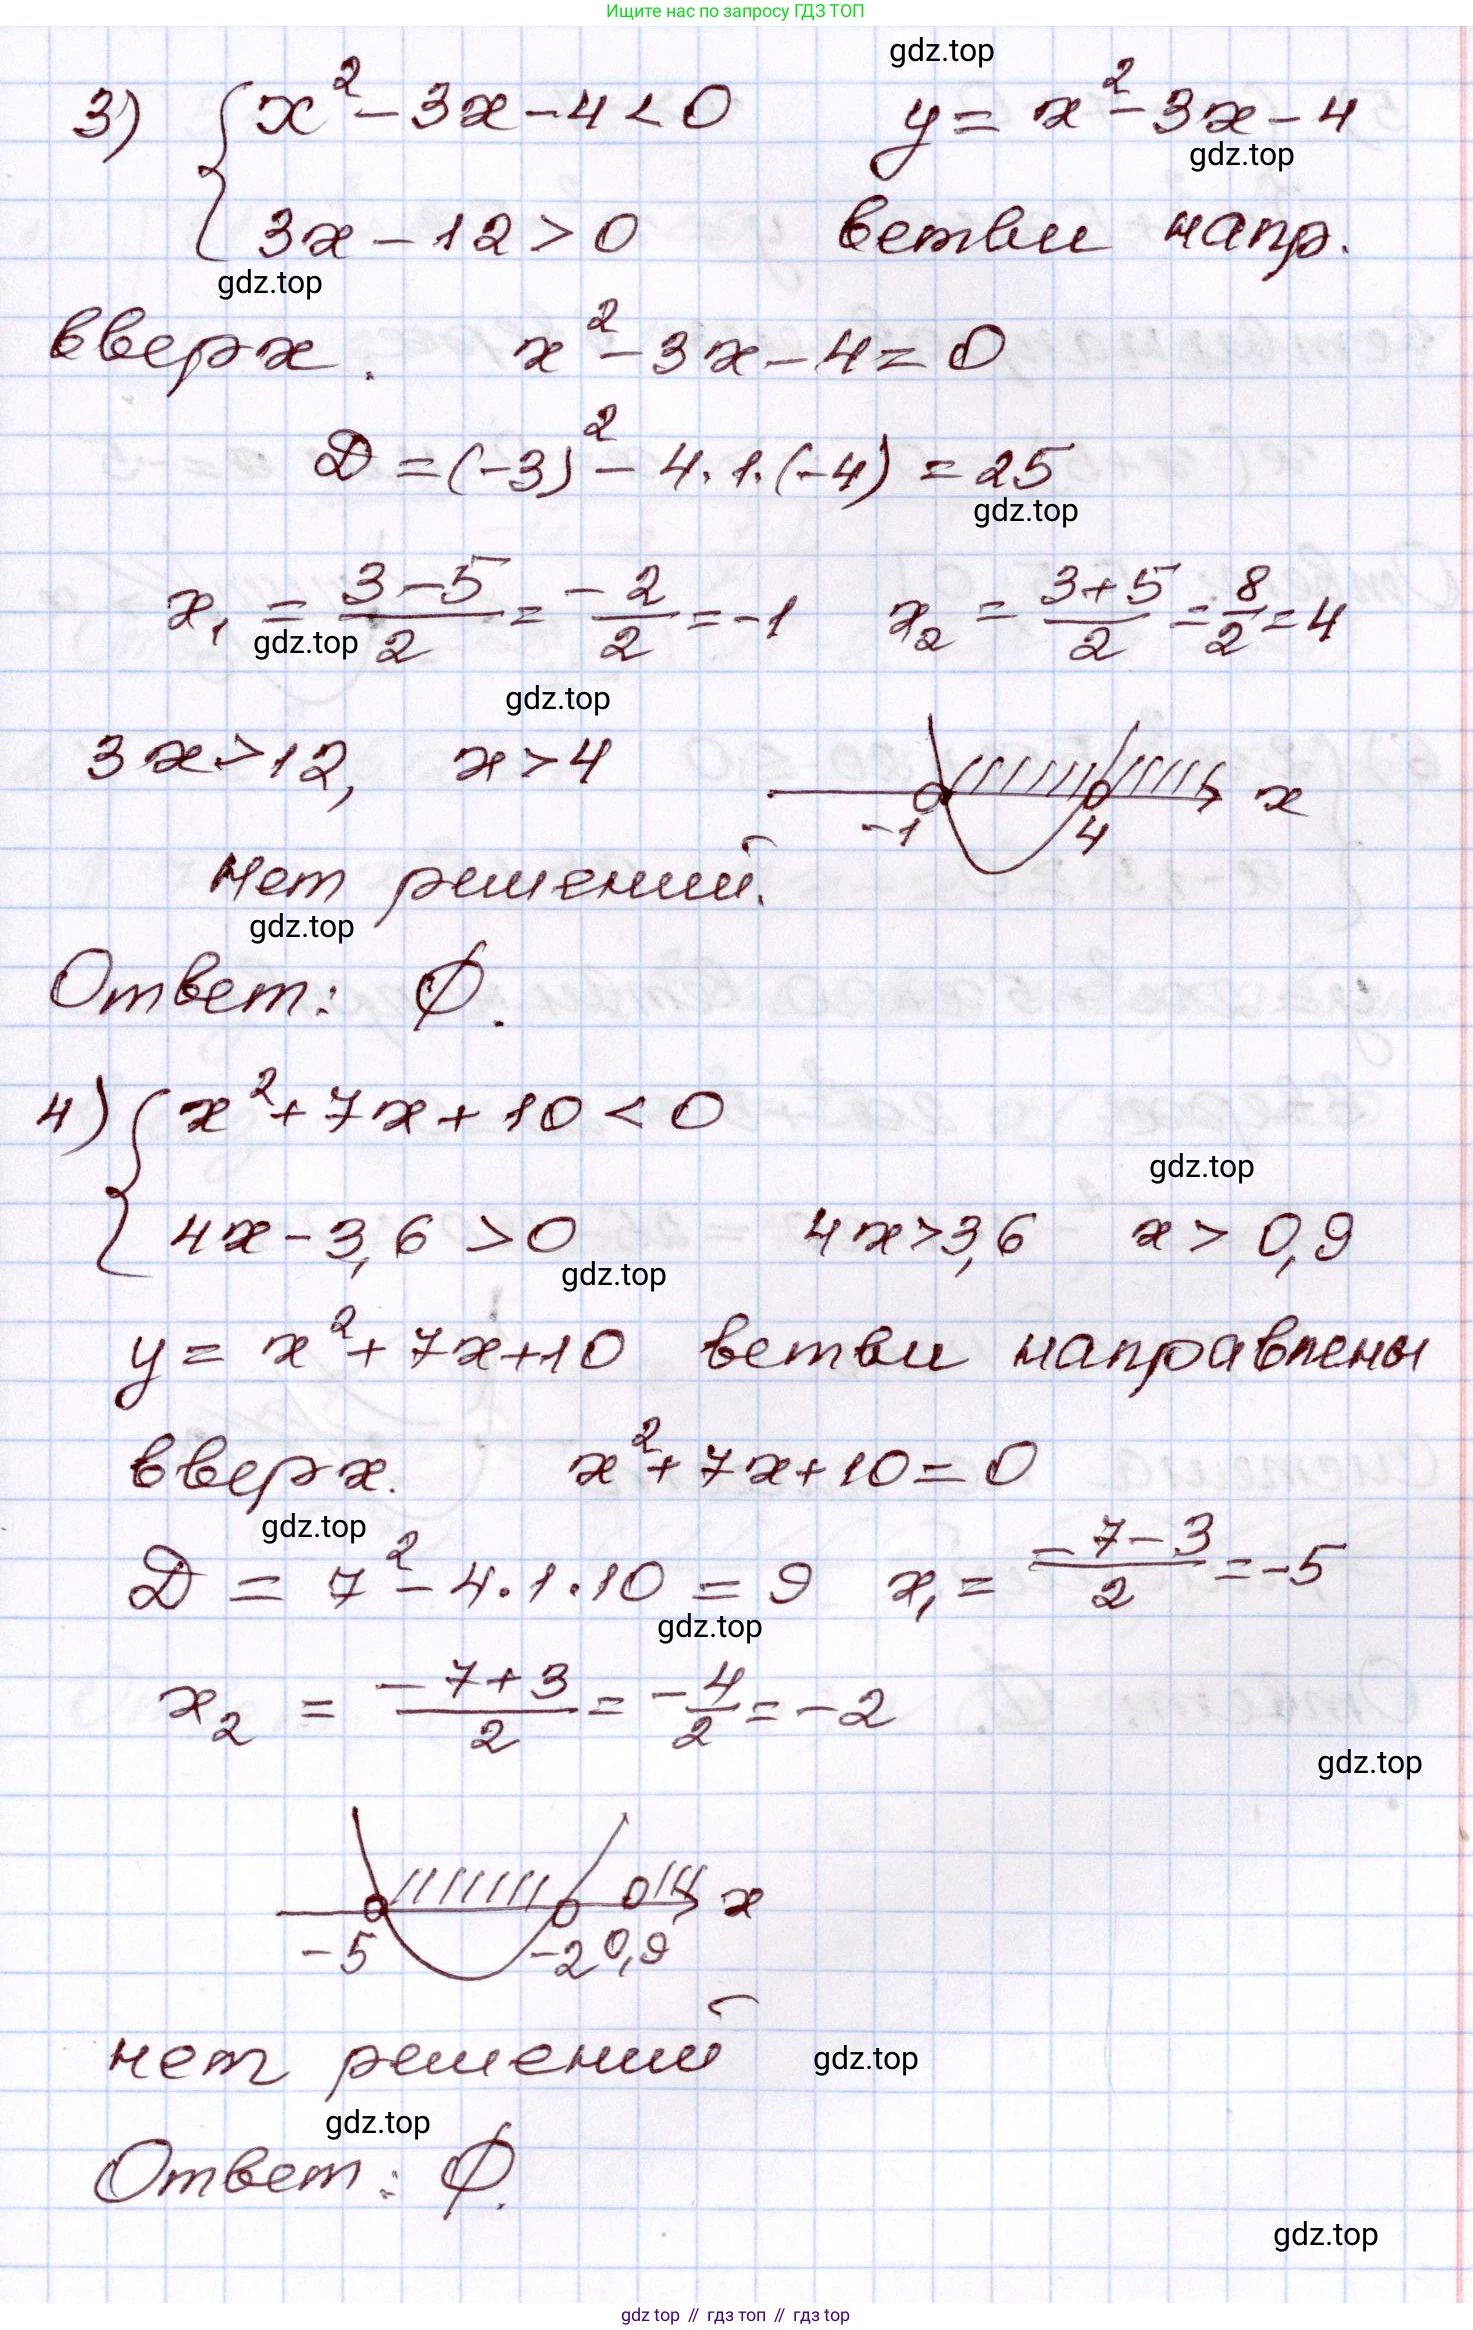 Ищите нас по запросу ГДЗ ТОП
gdz.top
3) { x² - 3x - 4 < 0 y = x² - 3x - 4
gdz.top
3x - 12 > 0 ветви напр.
gdz.top
вверх. x² - 3x - 4 = 0
D = (-3)² - 4·1·(-4) = 25
gdz.top
x₁ = (3-5)/2 = -2/2 = -1 x₂ = (3+5)/2 = 8/2 = 4
gdz.top
gdz.top
3x > 12, x > 4
-1 4 x
нет решений.
gdz.top
Ответ: Ø.
4) { x² + 7x + 10 < 0
gdz.top
4x - 3,6 > 0 4x > 3,6 x > 0,9
gdz.top
y = x² + 7x + 10 ветви направлены
вверх. x² + 7x + 10 = 0
gdz.top
D = 7² - 4·1·10 = 9 x₁ = (-7-3)/2 = -5
gdz.top
x₂ = (-7+3)/2 = -4/2 = -2
gdz.top
x
-5 -2 0,9
нет решений
gdz.top
gdz.top
Ответ: Ø.
gdz.top
gdz top // гдз топ // гдз top